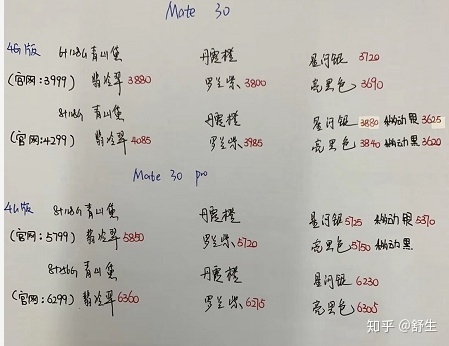 Mate 30
4G版 6+128G 青山黛 丹霞橙 星河银 3720
(官网:3999) 翡冷翠 3880 罗兰紫 3800 亮黑色 3690
8+128G 青山黛 丹霞橙 星河银 3880 移动银 3625
(官网:4299) 翡冷翠 4085 罗兰紫 3985 亮黑色 3840 移动黑 3620
Mate 30 pro
4G版 8+128G 青山黛 丹霞橙 星河银 5725 移动银 5370
(官网:5799) 翡冷翠 5850 罗兰紫 5720 亮黑色 5750 移动黑
8+256G 青山黛 丹霞橙 星河银 6230
(官网:6299) 翡冷翠 6360 罗兰紫 6215 亮黑色 6305
知乎 @舒生